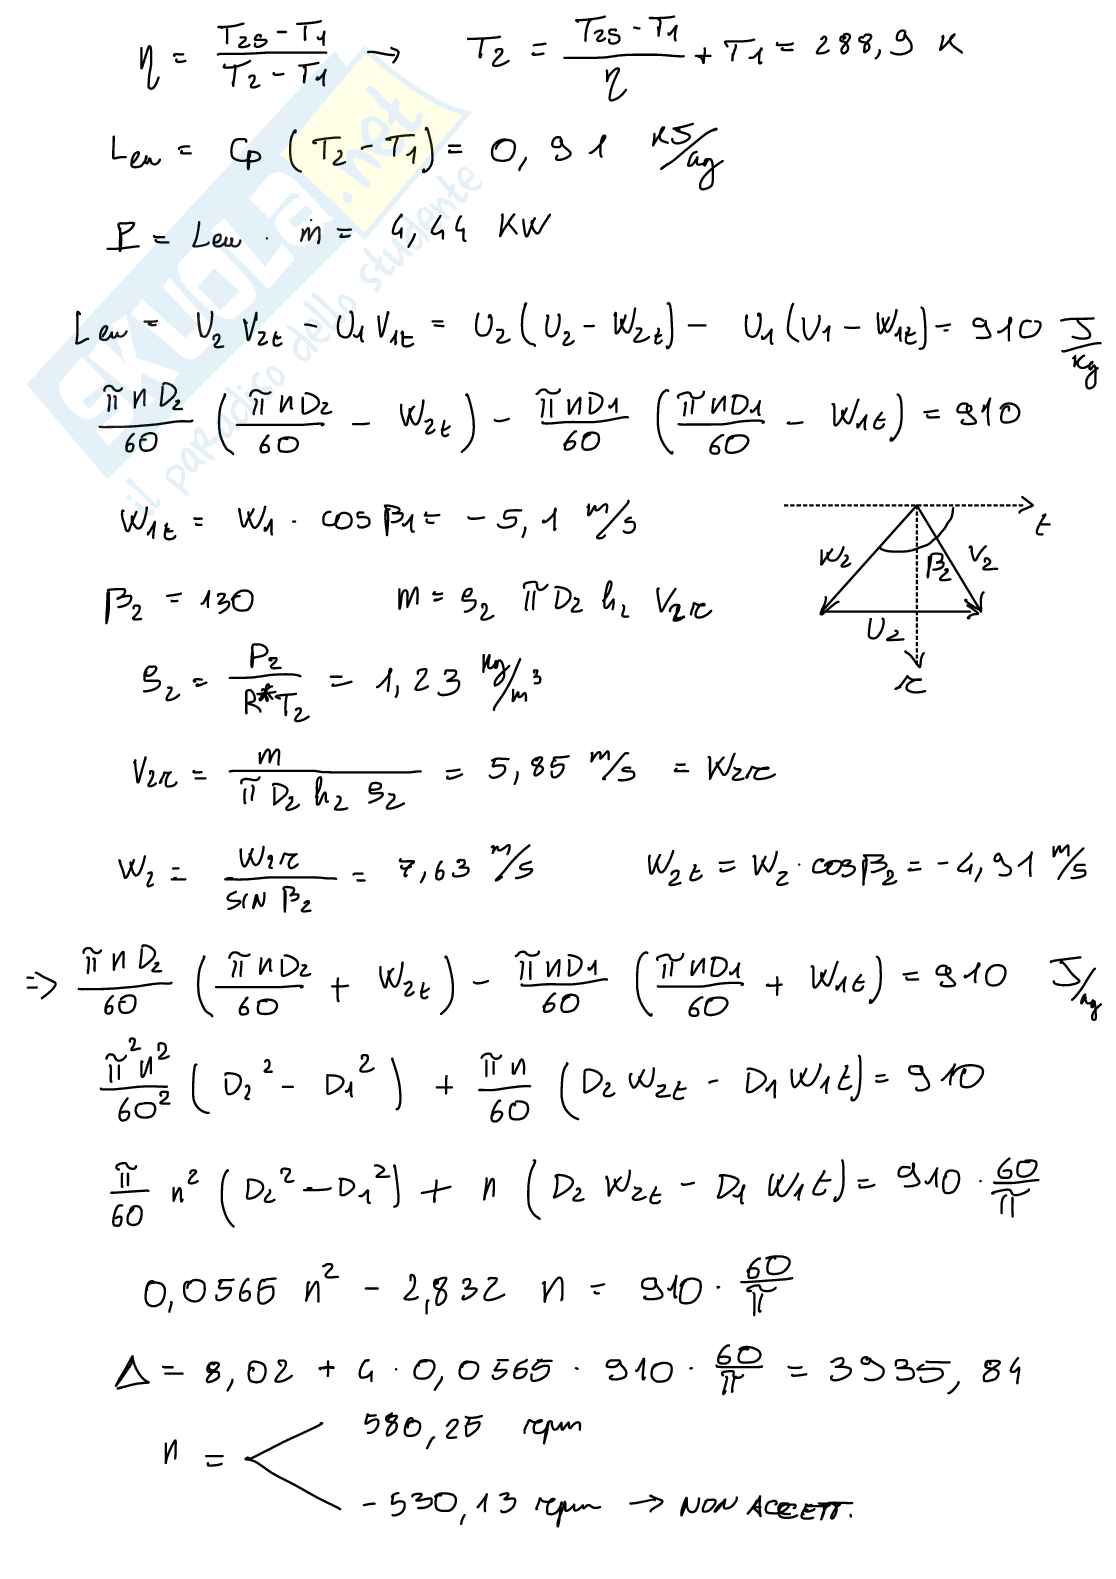 η = (T2s - T1)/(T2 - T1) → T2 = (T2s - T1)/η + T1 = 288,9 K
Lew = Cp (T2 - T1) = 0,91 KJ/kg
P = Lew · ṁ = 4,44 KW
Lew = U2 V2t - U1 V1t = U2 (U2 - W2t) - U1 (U1 - W1t) = 910 J/kg
πnD2/60 (πnD2/60 - W2t) - πnD1/60 (πnD1/60 - W1t) = 910
W1t = W1 · cos β1 = -5,1 m/s
t
W2 β2 V2
U2
r
β2 = 130 m = ρ2 π D2 h2 V2r
ρ2 = P2/(R*T2) = 1,23 kg/m³
V2r = m/(π D2 h2 ρ2) = 5,85 m/s = W2r
W2 = W2r/sin β2 = 7,63 m/s W2t = W2 · cos β2 = -4,91 m/s
=> πnD2/60 (πnD2/60 + W2t) - πnD1/60 (πnD1/60 + W1t) = 910 J/kg
π²n²/60² (D2² - D1²) + πn/60 (D2 W2t - D1 W1t) = 910
π/60 n² (D2² - D1²) + n (D2 W2t - D1 W1t) = 910 · 60/π
0,0565 n² - 2,832 n = 910 · 60/π
Δ = 8,02 + 4 · 0,0565 · 910 · 60/π = 3935,84
n = 580,25 rpm
-530,13 rpm → NON ACCETT.
SKUOLA.net
il paradiso dello studente